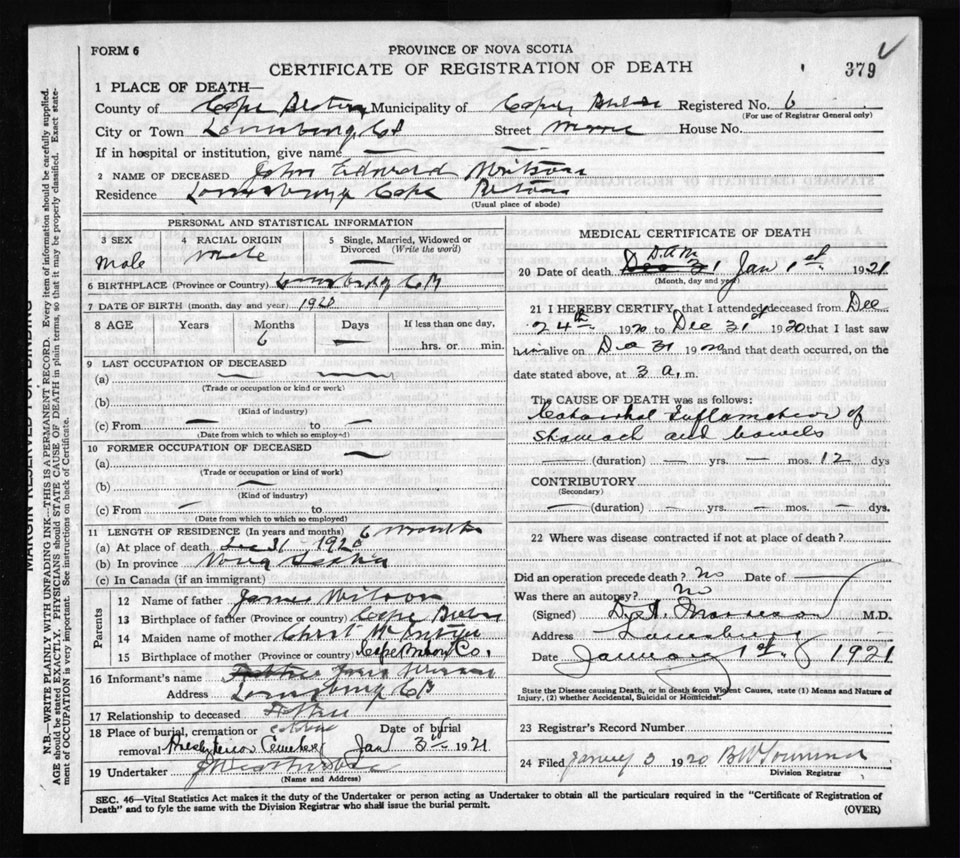 FORM 6
PROVINCE OF NOVA SCOTIA
CERTIFICATE OF REGISTRATION OF DEATH
379
1 PLACE OF DEATH—
County of Cape Breton Municipality of Cape Breton Registered No. 6
(For use of Registrar General only)
City or Town Louisburg CB Street House No.
If in hospital or institution, give name —
2 NAME OF DECEASED John Edward Wilson
Residence Louisburg Cape Breton
(Usual place of abode)
PERSONAL AND STATISTICAL INFORMATION
3 SEX
Male
4 RACIAL ORIGIN
White
5 Single, Married, Widowed or Divorced (Write the word)
—
6 BIRTHPLACE (Province or Country) Louisburg CB
7 DATE OF BIRTH (month, day and year) 1920
8 AGE Years Months Days If less than one day,
6 — hrs. or min.
9 LAST OCCUPATION OF DECEASED
(a) — —
(Trade or occupation or kind or work)
(b)
(Kind of industry)
(c) From — to —
(Date from which to which so employed)
10 FORMER OCCUPATION OF DECEASED
(a) —
(Trade or occupation or kind of work)
(b) —
(Kind of industry)
(c) From — to
(Date from which to which so employed)
11 LENGTH OF RESIDENCE (In years and months) 6 months
(a) At place of death Dec 31 - 1920
(b) In province Nova Scotia
(c) In Canada (if an immigrant)
Parents
12 Name of father James Wilson
13 Birthplace of father (Province or country) Cape Breton
14 Maiden name of mother Christ McIntyre
15 Birthplace of mother (Province or country) Cape Breton Co.
16 Informant's name
Address Louisburg CB
17 Relationship to deceased Father
18 Place of burial, cremation or removal Presbyterian Cemetery Date of burial Jan 3rd 1921
19 Undertaker
(Name and Address)
MEDICAL CERTIFICATE OF DEATH
20 Date of death Dec 31 Jan 1st 1921
(Month, day and year)
21 I HEREBY CERTIFY, that I attended deceased from Dec
24th 1920 to Dec 31st 1920 that I last saw
him alive on Dec 31 1920 and that death occurred, on the
date stated above, at 3 a. m.
The CAUSE OF DEATH was as follows:
Catarrhal Inflamation of
Stomach and bowels
— (duration) — yrs. — mos. 12 dys
CONTRIBUTORY
(Secondary)
— (duration) — yrs. — mos. — dys.
22 Where was disease contracted if not at place of death?
Did an operation precede death? No Date of —
Was there an autopsy? No
(Signed) M.D.
Address Louisburg
Date January 1st 1921
State the Disease causing Death, or in death from Violent Causes, state (1) Means and Nature of
Injury, (2) whether Accidental, Suicidal or Homicidal.
23 Registrar's Record Number
24 Filed January 3 1920
Division Registrar
SEC. 46—Vital Statistics Act makes it the duty of the Undertaker or person acting as Undertaker to obtain all the particulars required in the "Certificate of Registration of
Death" and to fyle the same with the Division Registrar who shall issue the burial permit.
(OVER)
MARGIN RESERVED FOR BINDING
N.B.—WRITE PLAINLY WITH UNFADING INK—THIS IS A PERMANENT RECORD. Every item of information should be carefully supplied.
AGE should be stated EXACTLY. PHYSICIANS should STATE CAUSE OF DEATH in plain terms, so that it may be properly classified. Exact statement of OCCUPATION is very important. See instructions on back of Certificate.